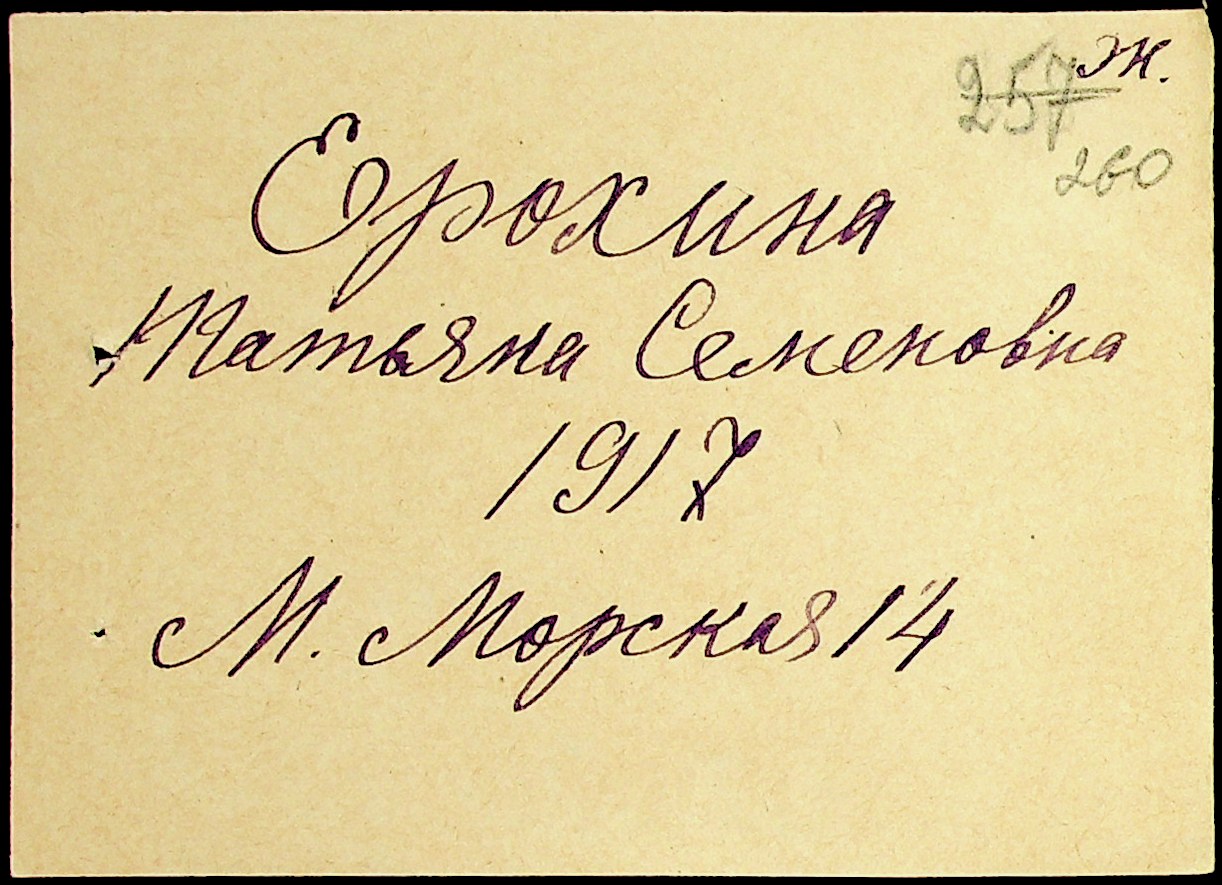 ж.
257
260
Ерохина
Татьяна Семеновна
1917
М. Морская 14